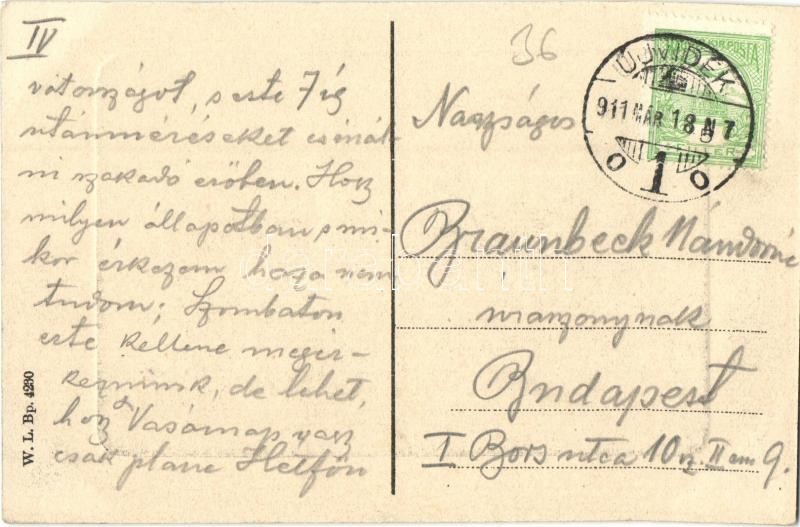 IV
36
vatország­ot, s este 7 ig
utánméréseket csinál-
ni szakadó esőben. Hogy
milyen állapotban s mi-
kor érkezem haza nem
tudom; Szombaton
este kellene megér-
keznünk, de lehet,
hogy Vasárnap vagy
csak pláne Hétfőn
W. L. Bp. 4230
ÚJVIDÉK
911 MÁR. 18 N 7
1
Nagyságos
Braunbeck Nándorné
úrasszonynak
Budapest
I Bors utca 10 sz. II em 9.
darabanth